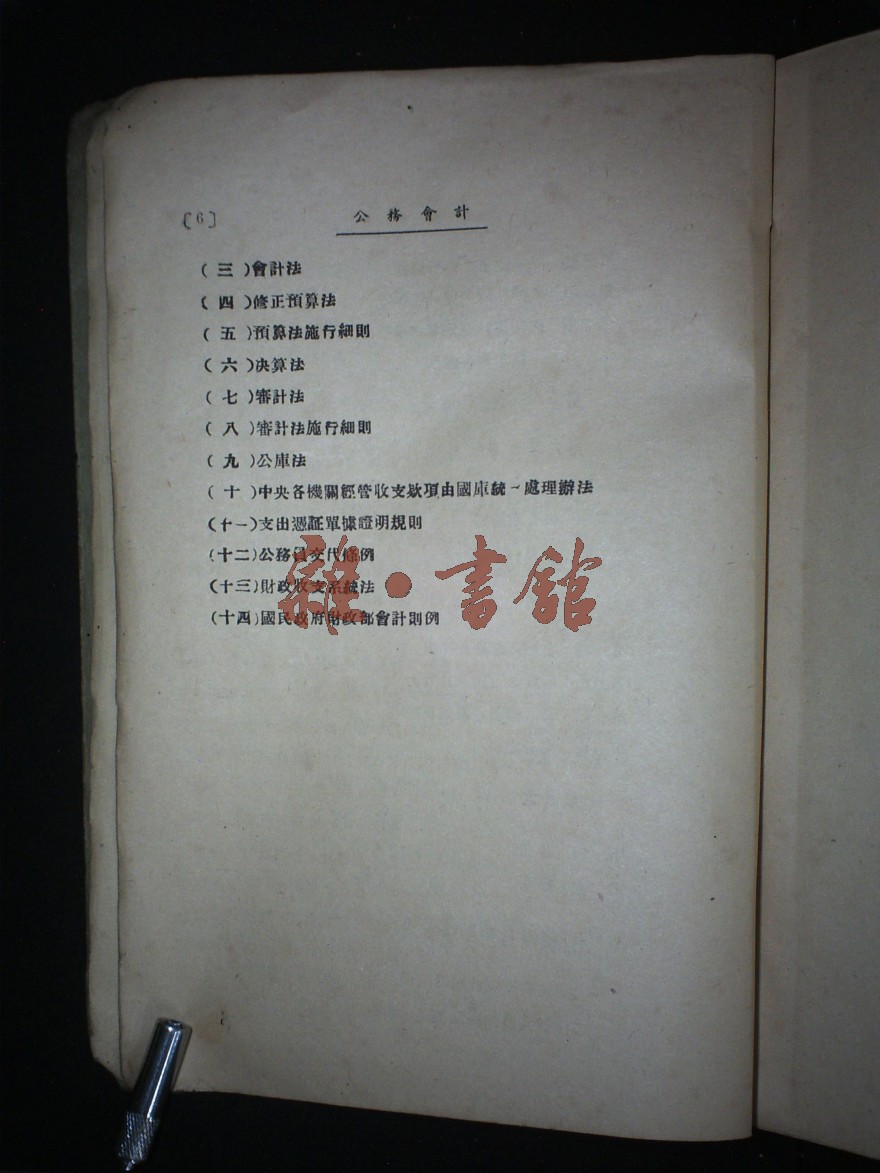 〔6〕 公務會計
(三)會計法
(四)修正預算法
(五)預算法施行細則
(六)決算法
(七)審計法
(八)審計法施行細則
(九)公庫法
(十)中央各機關經管收支欵項由國庫統一處理辦法
(十一)支出憑証單據證明規則
(十二)公務員交代條例
(十三)財政收支系統法
(十四)國民政府財政部會計則例
雜·書館